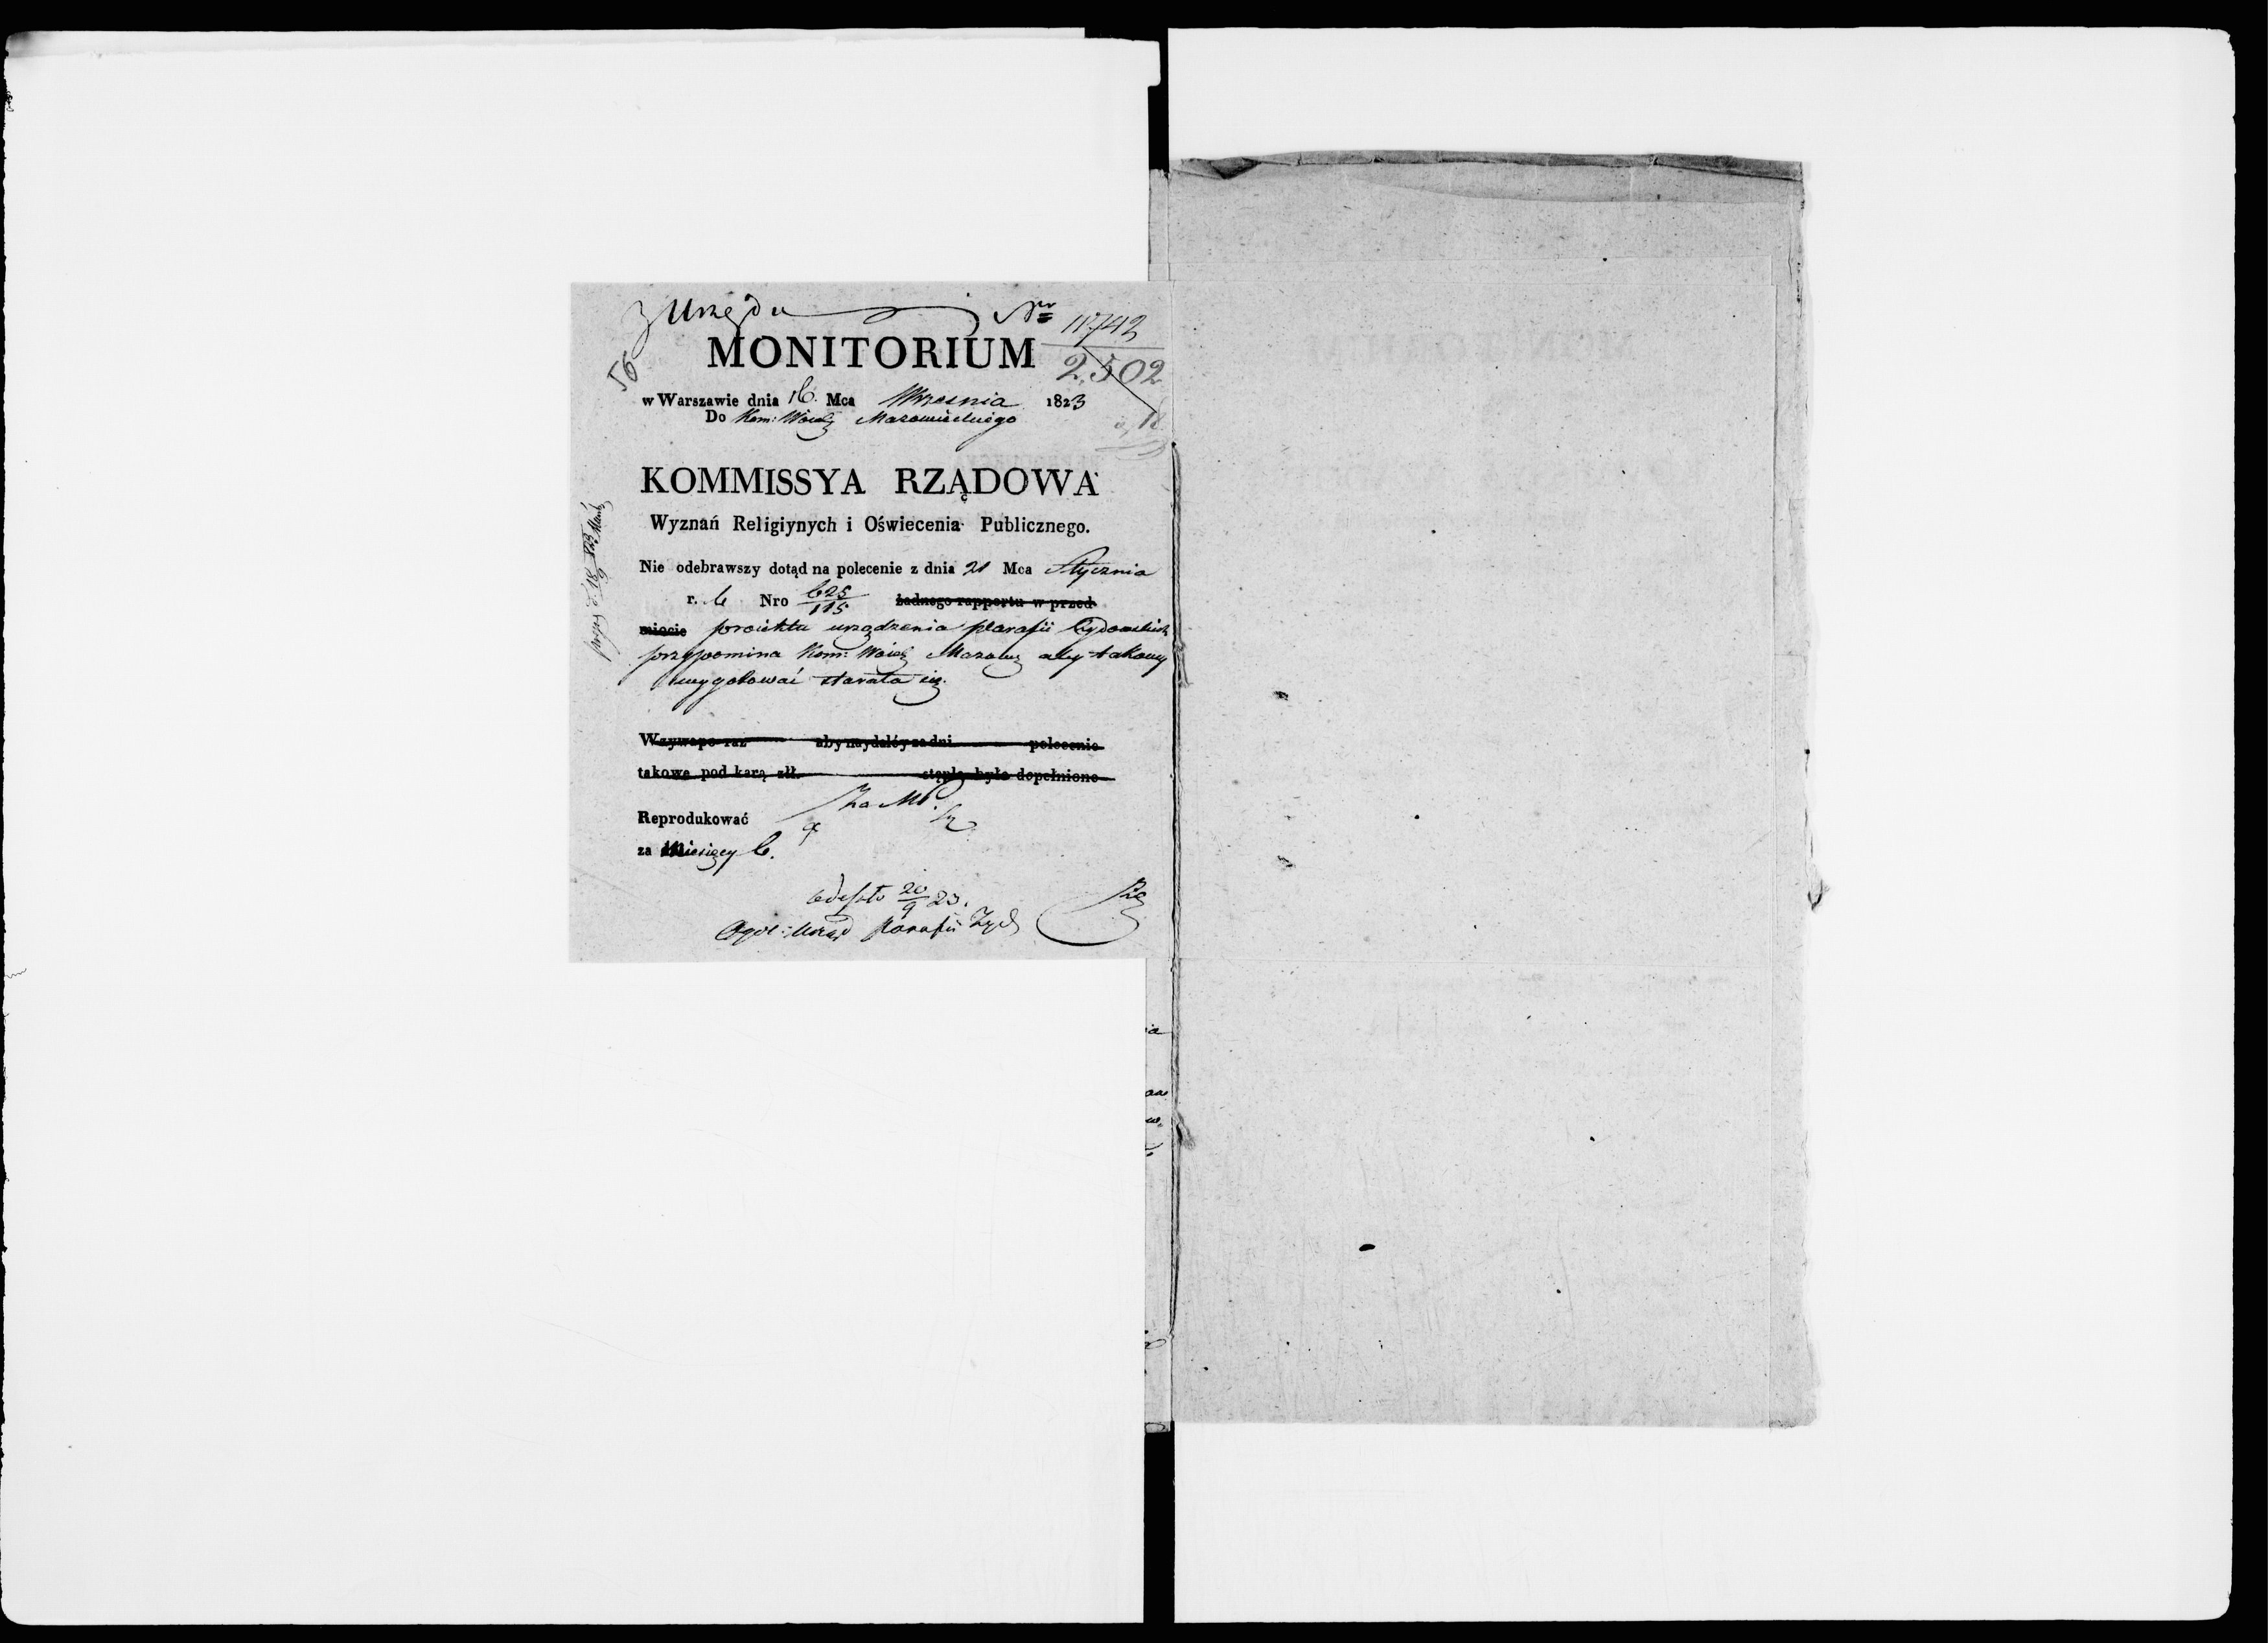 z Urzędu Nro 11742
56 MONITORIUM 2,502
w Warszawie dnia 16. Mca Wrzesnia 1823
Do Kom: Woiew Mazowieckiego
KOMMISSYA RZĄDOWA
Wyznań Religiynych i Oświecenia Publicznego.
Nie odebrawszy dotąd na polecenie z dnia 21 Mca Stycznia
r. b Nro 625/115 żadnego rapportu w przed-
miocie proiektu urządzenia parafii Żydowskich
przypomina Kom: Woiew Mazow aby takowy
wygotować starała się.
Wzywa po raz aby naydaléy za dni polecenie
takowe pod karą złł. stępla było dopełnione
Za MP.
Reprodukować
za Miesięcy 6.
odeszło 20/9 23.
Ogól: Urząd Parafii Żyd